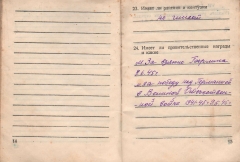 23. Имеет ли ранения и контузии
не имеет
24. Имеет ли правительственные награды
и какие
м. За взятие Берлина
9.6.45г.
м. за победу над Германией
в Великой Отечественной
войне
14
15